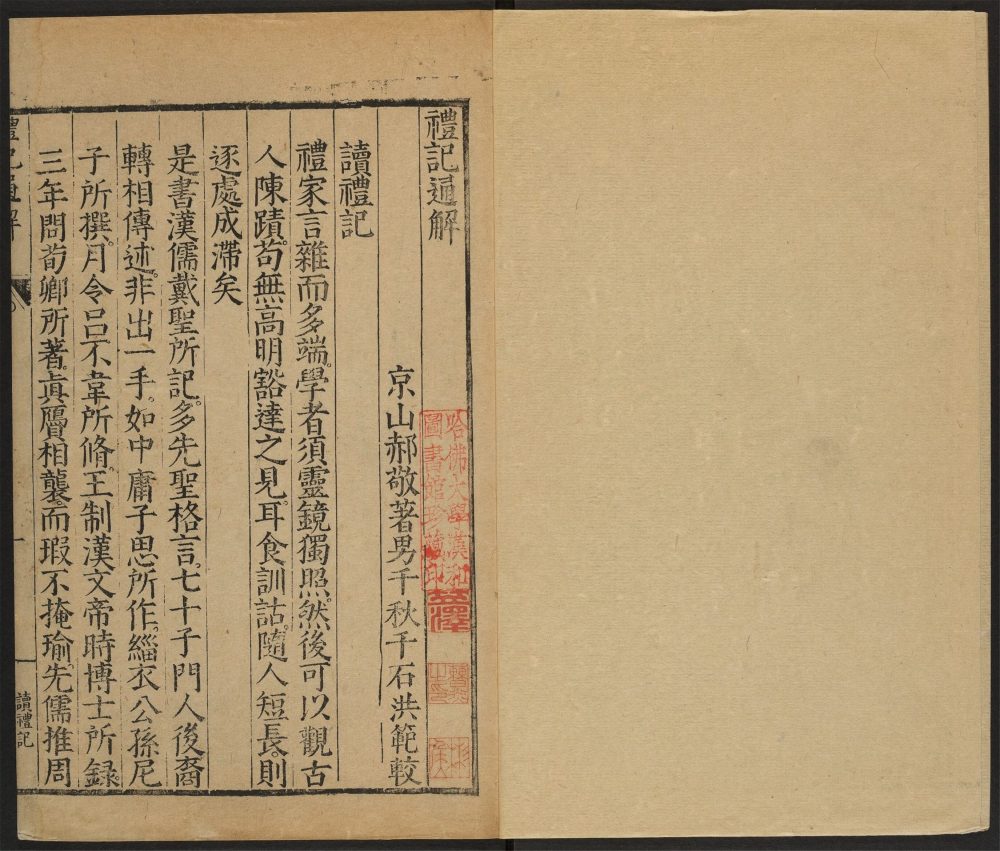 禮記通解
京山郝敬著男千秋千石洪範較
讀禮記
禮家言雜而多端。學者須靈鏡獨照。然後可以觀古
人陳蹟。苟無高明豁達之見。耳食訓詁。隨人短長。則
逐處成滯矣
是書漢儒戴聖所記。多先聖格言。七十子門人後裔
轉相傳述。非出一手。如中庸子思所作。緇衣公孫尼
子所撰。月令呂不韋所脩。王制漢文帝時博士所錄
三年問荀卿所著。眞贗相襲。而瑕不掩瑜。先儒推周
禮記通解
一
讀禮記
哈佛大學漢和
圖書館珍藏印